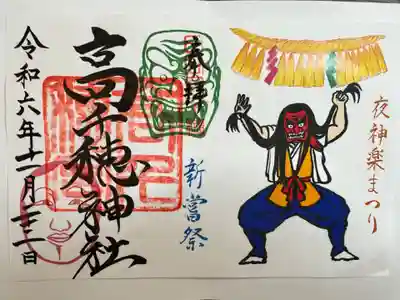 夜神楽まつり
奉拝
新嘗祭
高千穂神社
令和六年十一月日